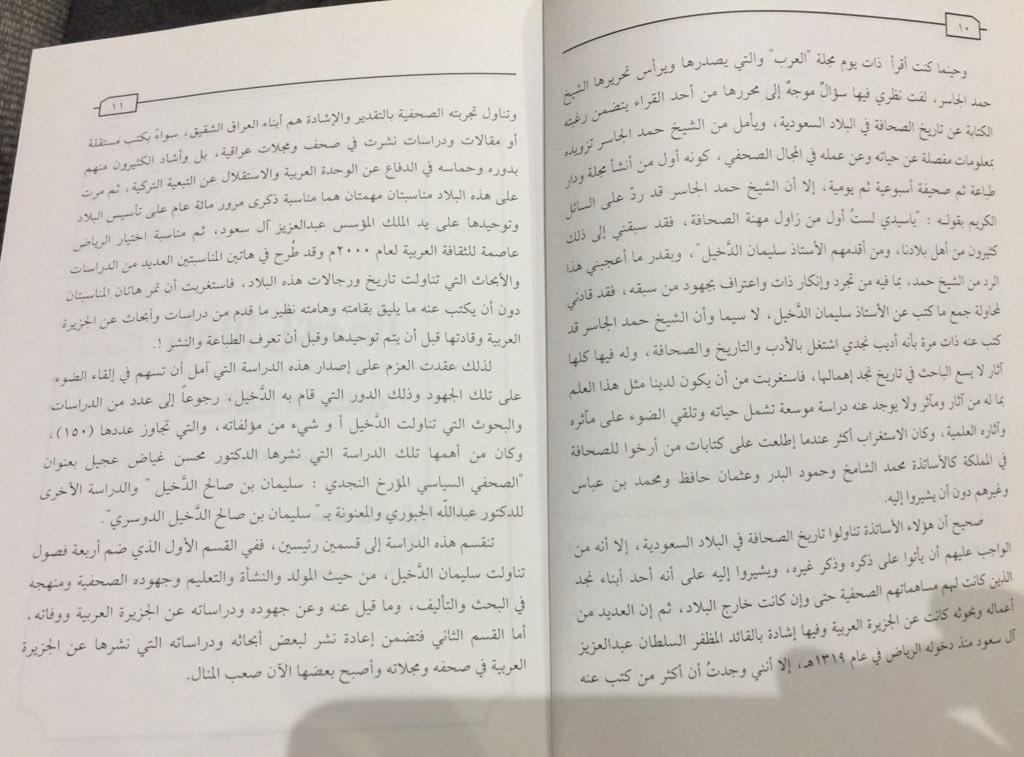 ١٠
وحينما كنت أقرأ ذات يوم مجلة "العرب" والتي يصدرها ويرأس تحريرها الشيخ
حمد الجاسر، لفت نظري فيها سؤالٌ موجهٌ إلى محررها من أحد القراء يتضمن رغبته
الكتابة عن تاريخ الصحافة في البلاد السعودية، ويأمل من الشيخ حمد الجاسر تزويده
بمعلومات مفصلة عن حياته وعن عمله في المجال الصحفي، كونه أول من أنشأ مجلة ودار
طباعة ثم صحيفة أسبوعية ثم يومية، إلا أن الشيخ حمد الجاسر قد ردّ على السائل
الكريم بقوله : "ياسيدي لستُ أول من زاول مهنة الصحافة، فقد سبقني إلى ذلك
كثيرون من أهل بلادنا، ومن أقدمهم الأستاذ سليمان الدَّخيل"، وبقدر ما أعجبني هذا
الرد من الشيخ حمد، بما فيه من تجرد وإنكار ذات واعتراف بجهود من سبقه، فقد قادني
لمحاولة جمع ما كتب عن الأستاذ سليمان الدَّخيل، لا سيما وأن الشيخ حمد الجاسر قد
كتب عنه ذات مرة بأنه أديب نجدي اشتغل بالأدب والتاريخ والصحافة، وله فيها كلها
آثار لا يسع الباحث في تاريخ نجد إهمالها، فاستغربت من أن يكون لدينا مثل هذا العلم
بما له من آثار ومآثر ولا يوجد عنه دراسة موسعة تشمل حياته وتلقي الضوء على مآثره
وآثاره العلمية، وكان الاستغراب أكثر عندما إطلعت على كتابات من أرخوا للصحافة
في المملكة كالأساتذة محمد الشامخ وحمود البدر وعثمان حافظ ومحمد بن عباس
وغيرهم دون أن يشيروا إليه.
صحيح أن هؤلاء الأساتذة تناولوا تاريخ الصحافة في البلاد السعودية، إلا أنه من
الواجب عليهم أن يأتوا على ذكره وذكر غيره، ويشيروا إليه على أنه أحد أبناء نجد
الذين كانت لهم مساهماتهم الصحفية حتى وإن كانت خارج البلاد، ثم إن العديد من
أعماله وبحوثه كانت عن الجزيرة العربية وفيها إشادة بالقائد المظفر السلطان عبدالعزيز
آل سعود منذ دخوله الرياض في عام ١٣١٩هـ، إلا أنني وجدتُ أن أكثر من كتب عنه
١١
وتناول تجربته الصحفية بالتقدير والإشادة هم أبناء العراق الشقيق، سواءً بكتب مستقلة
أو مقالات ودراسات نشرت في صحف ومجلات عراقية، بل وأشاد الكثيرون منهم
بدوره وحماسه في الدفاع عن الوحدة العربية والاستقلال عن التبعية التركية، ثم مرت
على هذه البلاد مناسبتان مهمتان هما مناسبة ذكرى مرور مائة عام على تأسيس البلاد
وتوحيدها على يد الملك المؤسس عبدالعزيز آل سعود، ثم مناسبة اختيار الرياض
عاصمة للثقافة العربية لعام ٢٠٠٠م وقد طُرح في هاتين المناسبتين العديد من الدراسات
والأبحاث التي تناولت تاريخ ورجالات هذه البلاد، فاستغربت أن تمر هاتان المناسبتان
دون أن يكتب عنه ما يليق بقامته وهامته نظير ما قدم من دراسات وأبحاث عن الجزيرة
العربية وقادتها قبل أن يتم توحيدها وقبل أن تعرف الطباعة والنشر !.
لذلك عقدت العزم على إصدار هذه الدراسة التي آمل أن تسهم في إلقاء الضوء
على تلك الجهود وذلك الدور التي قام به الدَّخيل، رجوعاً إلى عدد من الدراسات
والبحوث التي تناولت الدَّخيل أ و شيء من مؤلفاته، والتي تجاوز عددها (١٥٠)،
وكان من أهمها تلك الدراسة التي نشرها الدكتور محسن غياض عجيل بعنوان
"الصحفي السياسي المؤرخ النجدي : سليمان بن صالح الدَّخيل " والدراسة الأخرى
للدكتور عبدالله الجبوري والمعنونة بـ " سليمان بن صالح الدَّخيل الدوسري".
تنقسم هذه الدراسة إلى قسمين رئيسين، ففي القسم الأول الذي ضم أربعة فصول
تناولت سليمان الدَّخيل، من حيث المولد والنشأة والتعليم وجهوده الصحفية ومنهجه
في البحث والتأليف، وما قيل عنه وعن جهوده ودراساته عن الجزيرة العربية ووفاته،
أما القسم الثاني فتضمن إعادة نشر لبعض أبحاثه ودراساته التي نشرها عن الجزيرة
العربية في صحفه ومجلاته وأصبح بعضها الآن صعب المنال.